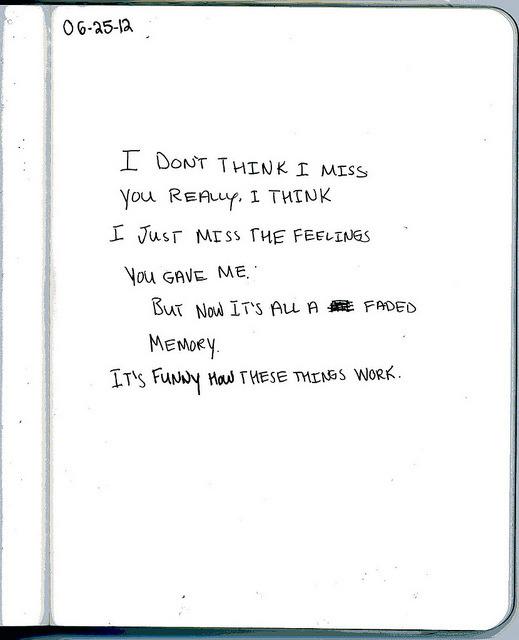 06-25-12
I DON'T THINK I MISS
YOU REALLY. I THINK
I JUST MISS THE FEELINGS
YOU GAVE ME.
BUT NOW IT'S ALL A FADED
MEMORY.
IT'S FUNNY HOW THESE THINGS WORK.